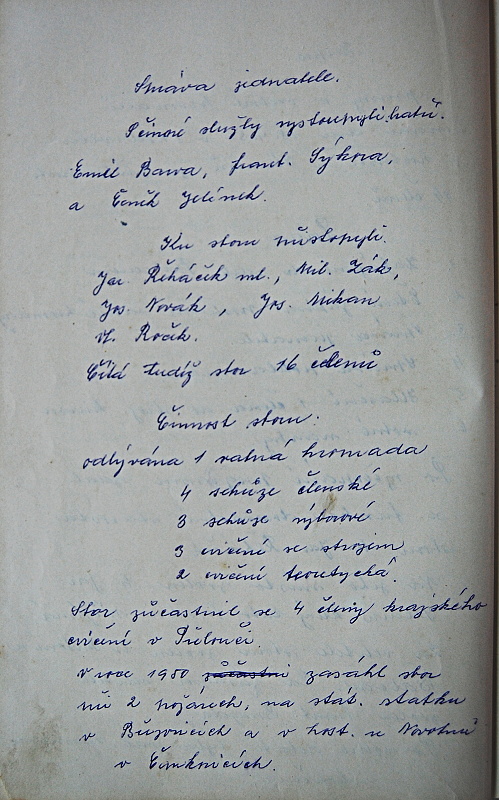 Správa jednatele.
Činné služby vystoupili bratři.
Emil Bawa, frant. Sýkora,
a Čeněk Jelínek.
Ku sboru přistoupili.
Jar. Řeháček ml., Mil. Žák,
Jos. Novák, Jos. Mikan
Vl. Ročk.
Čítá tudíž sbor 16 členů
Činnost sboru:
odbývána 1 valná hromada
4 schůze členské
3 schůze výborové
3 cvičení se strojem
2 cvičení
Sbor zůčastnil se 4 členy krajského
cvičení v Přelouči
v roce 1950 zůčastni zasáhl sbor
při 2 požárech, na stát. statku
v a v host. u Novotnů
v